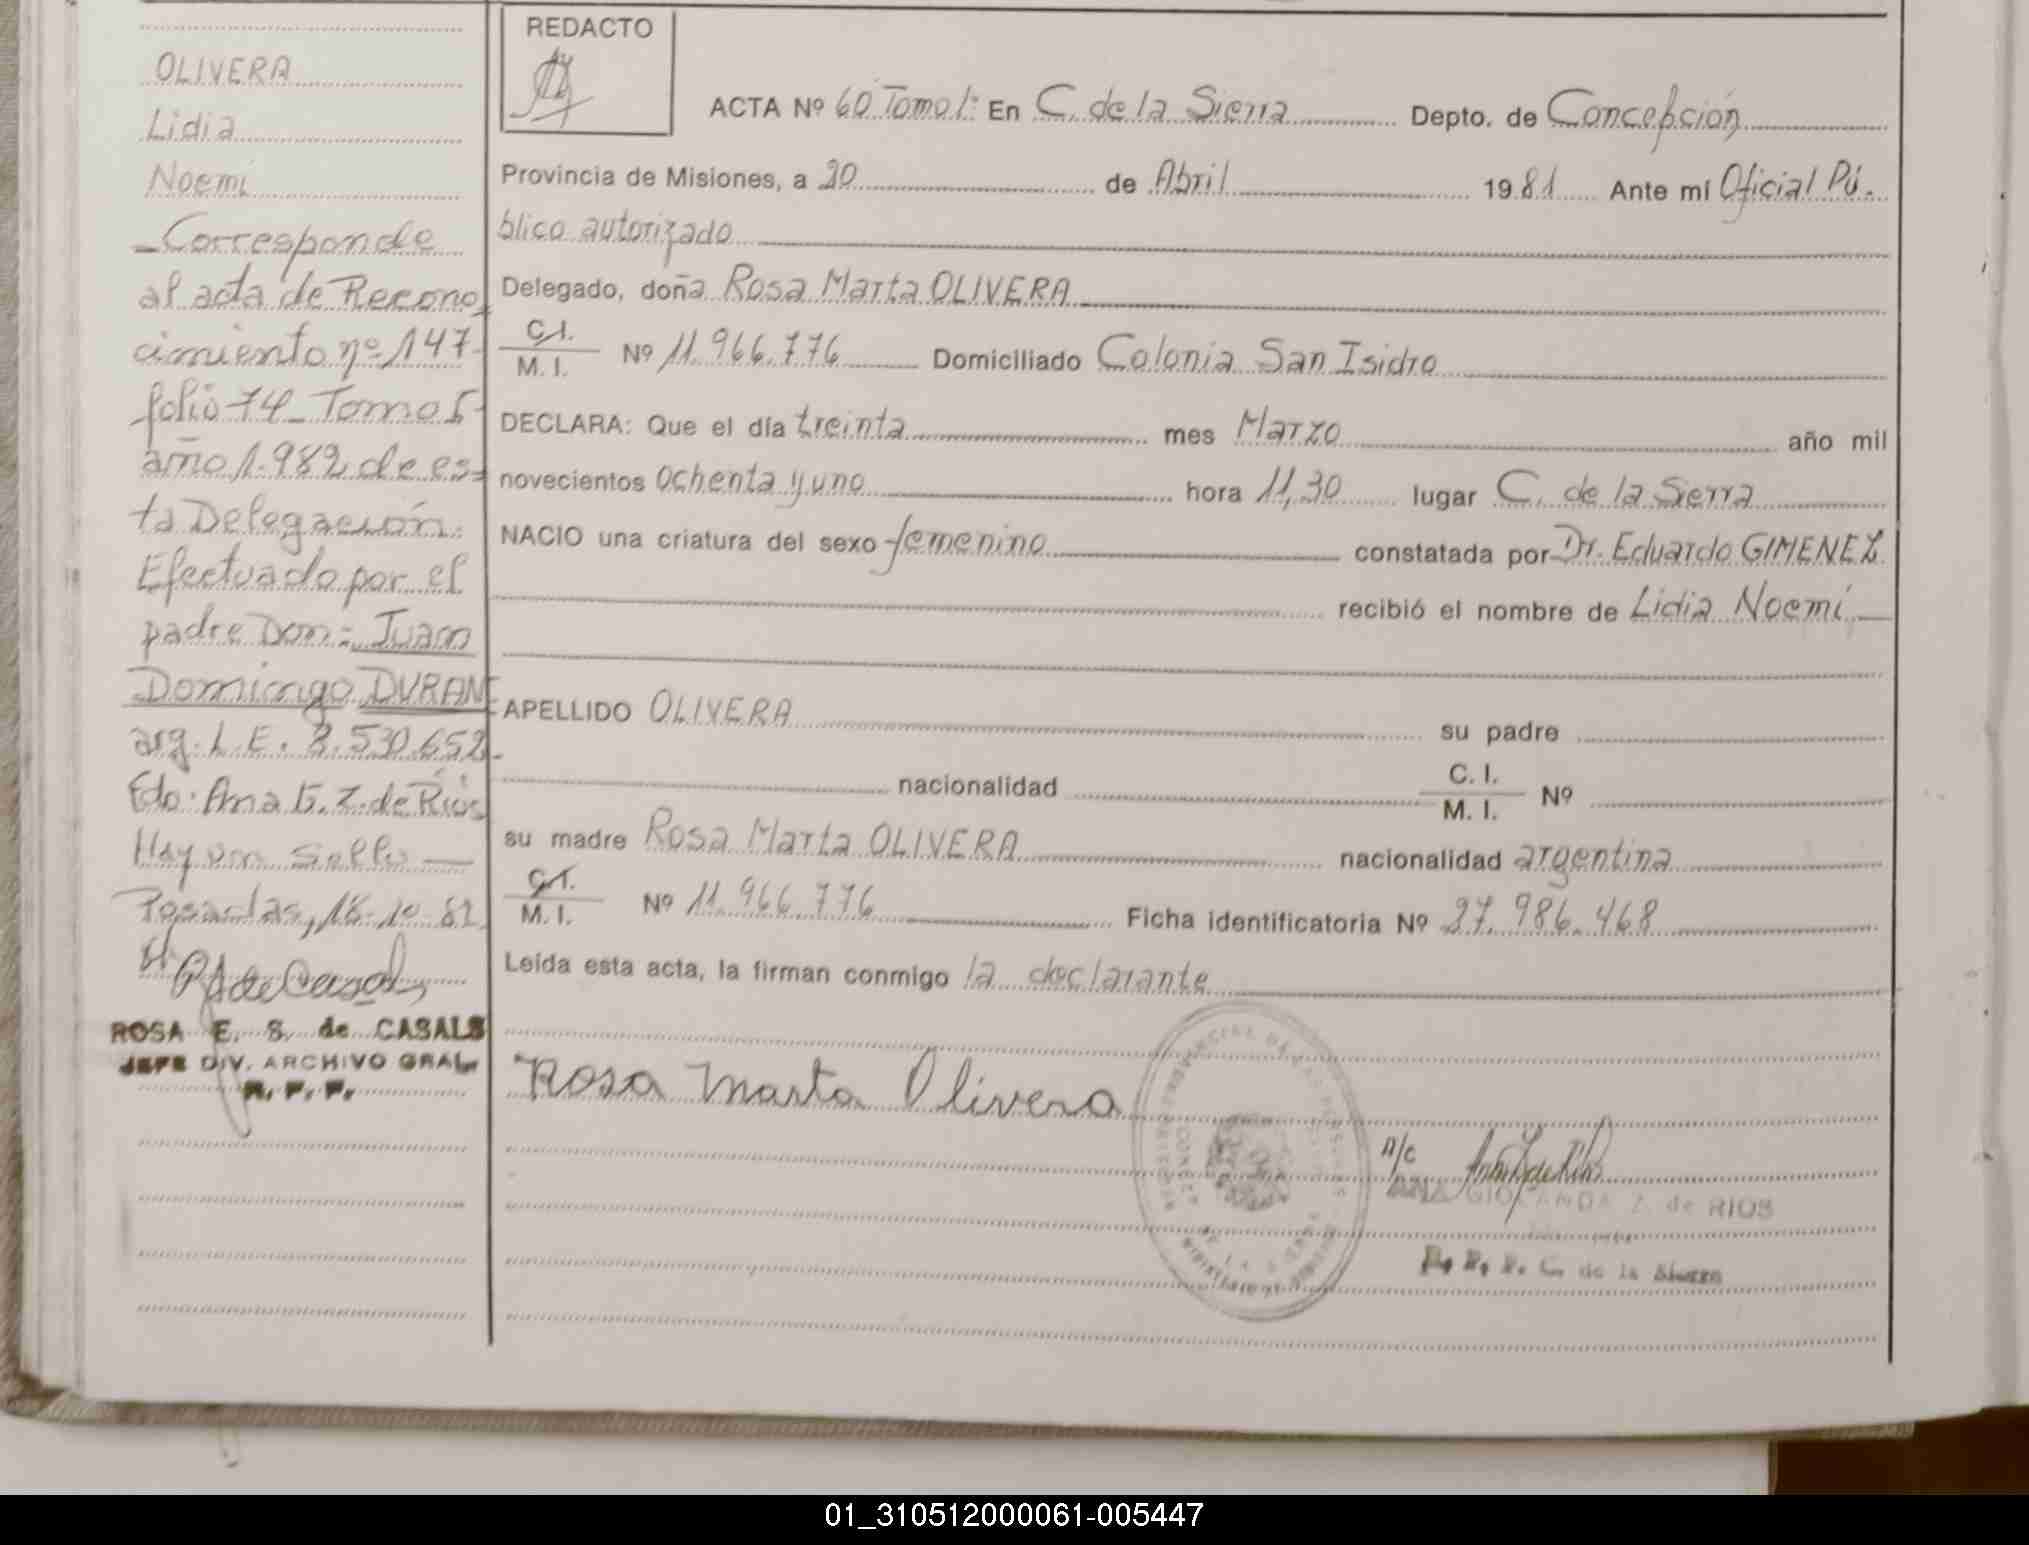 OLIVERA
Lidia
Noemí
-Corresponde
al acta de Recono
cimiento nº 147-
folio 74- Tomo I-
año 1.982 de es=
ta Delegación.
Efectuado por el
padre Don= Juan
Domingo DURAN
arg. L.E. 3.530.652-
Fdo: Ana G. Z. de Ríos
Hay un Sello —
Posadas, 18-10-82
ROSA E. S. de CASALS
JEFE DIV. ARCHIVO GRAL.
R. P. P.
REDACTO
ACTA Nº 60 Tomo I: En C. de la Sierra Depto. de Concepción
Provincia de Misiones, a 20 de Abril 1981 Ante mí Oficial Pú.
blico autorizado
Delegado, doña Rosa Marta OLIVERA
C.I.
M. I. Nº 11.966.776 Domiciliado Colonia San Isidro
DECLARA: Que el día treinta mes Marzo año mil
novecientos ochenta y uno hora 11,30 lugar C. de la Sierra
NACIO una criatura del sexo femenino constatada por Dr. Eduardo GIMENEZ
recibió el nombre de Lidia Noemí
APELLIDO OLIVERA su padre
nacionalidad C. I.
M. I. Nº
su madre Rosa Marta OLIVERA nacionalidad argentina
C.I.
M. I. Nº 11.966.776 Ficha identificatoria Nº 27.986.468
Leída esta acta, la firman conmigo la declarante
Rosa Marta Olivera
A/C
Z. de RIOS
C. de la Sierra
01_310512000061-005447